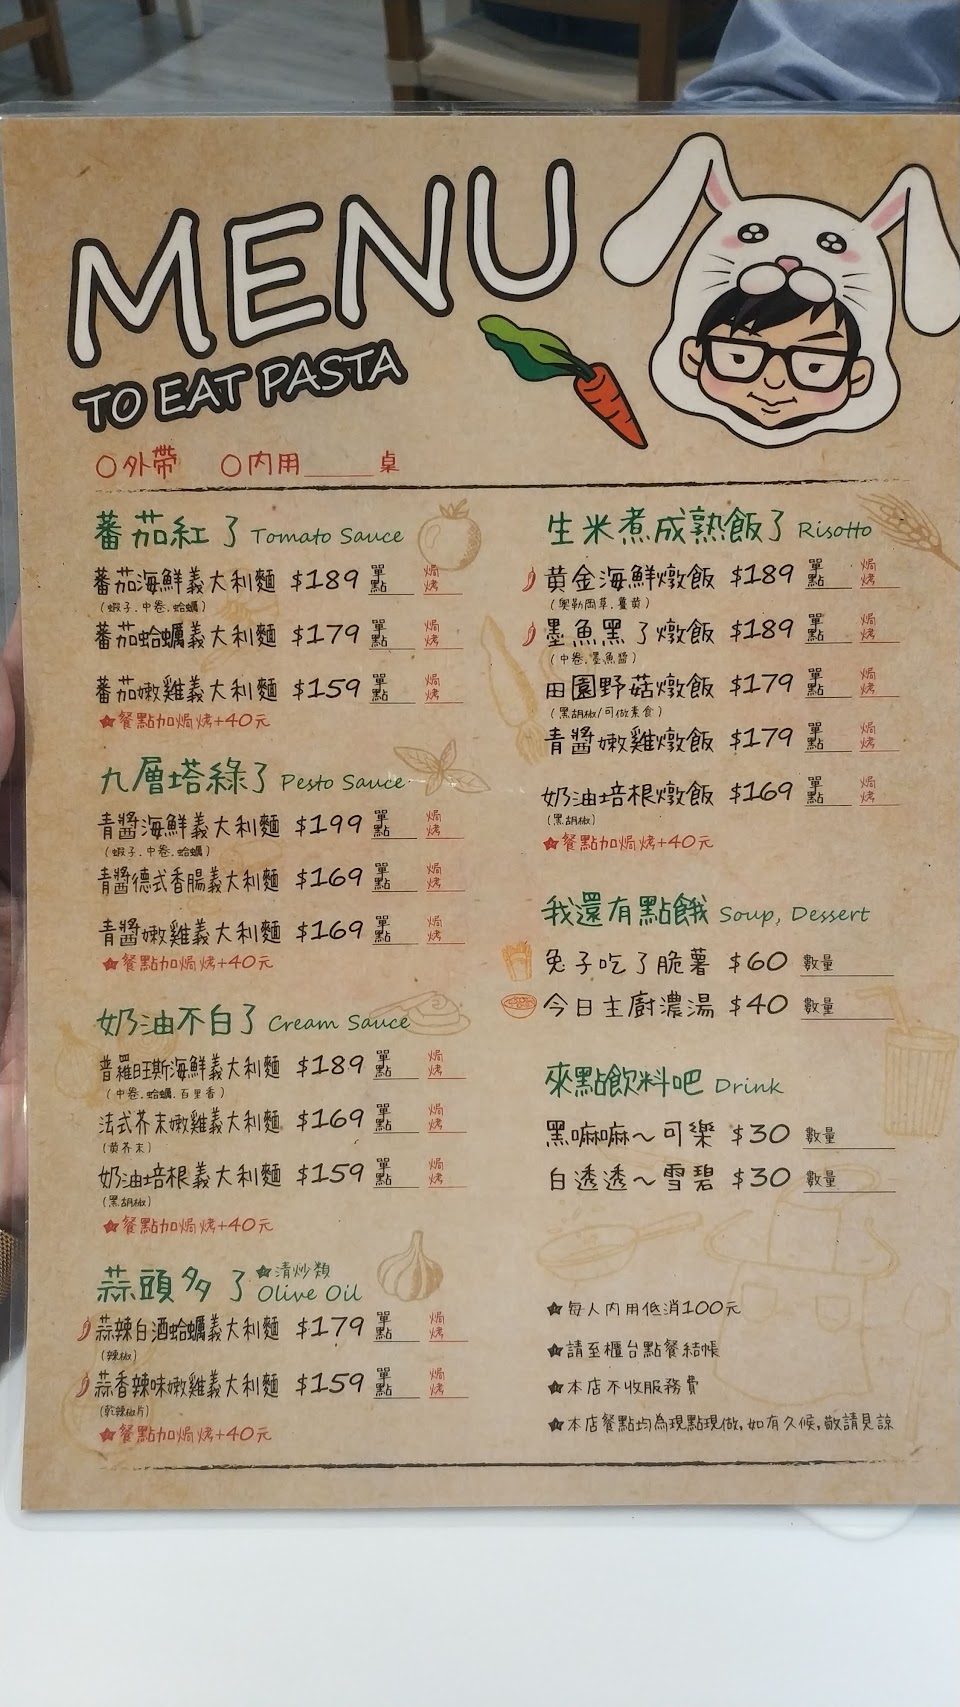 MENU
TO EAT PASTA
○外帶 ○內用______桌
蕃茄紅了 Tomato Sauce
蕃茄海鮮義大利麵 $189 單點 焗烤
(蝦子.中卷.蛤蠣)
蕃茄蛤蠣義大利麵 $179 單點 焗烤
蕃茄嫩雞義大利麵 $159 單點 焗烤
★餐點加焗烤+40元
九層塔綠了 Pesto Sauce
青醬海鮮義大利麵 $199 單點 焗烤
(蝦子.中卷.蛤蠣)
青醬德式香腸義大利麵 $169 單點 焗烤
青醬嫩雞義大利麵 $169 單點 焗烤
★餐點加焗烤+40元
奶油不白了 Cream Sauce
普羅旺斯海鮮義大利麵 $189 單點 焗烤
(中卷.蛤蠣.百里香)
法式芥末嫩雞義大利麵 $169 單點 焗烤
(黃芥末)
奶油培根義大利麵 $159 單點 焗烤
(黑胡椒)
★餐點加焗烤+40元
蒜頭多了 ★清炒類 Olive Oil
蒜辣白酒蛤蠣義大利麵 $179 單點 焗烤
(辣椒)
蒜香辣味嫩雞義大利麵 $159 單點 焗烤
(乾辣椒片)
★餐點加焗烤+40元
生米煮成熟飯了 Risotto
黃金海鮮燉飯 $189 單點 焗烤
(奧勒岡草.薑黃)
墨魚黑了燉飯 $189 單點 焗烤
(中卷.墨魚醬)
田園野菇燉飯 $179 單點 焗烤
(黑胡椒/可做素食)
青醬嫩雞燉飯 $179 單點 焗烤
奶油培根燉飯 $169 單點 焗烤
(黑胡椒)
★餐點加焗烤+40元
我還有點餓 Soup, Dessert
兔子吃了脆薯 $60 數量
今日主廚濃湯 $40 數量
來點飲料吧 Drink
黑嘛嘛～可樂 $30 數量
白透透～雪碧 $30 數量
★每人內用低消100元
★請至櫃台點餐結帳
★本店不收服務費
★本店餐點均為現點現做,如有久候,敬請見諒